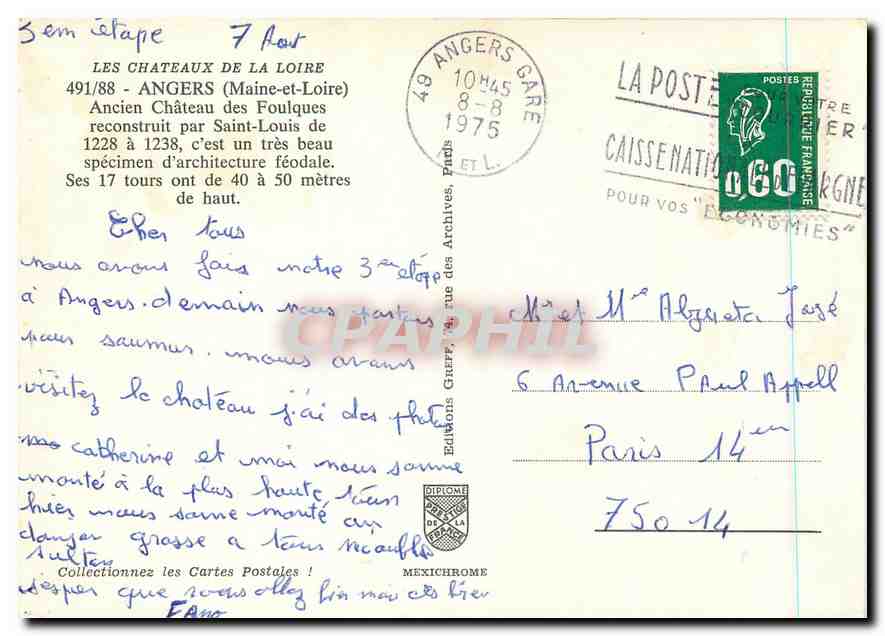 3em étape 7 Aout
LES CHATEAUX DE LA LOIRE
491/88 - ANGERS (Maine-et-Loire)
Ancien Château des Foulques
reconstruit par Saint-Louis de
1228 à 1238, c'est un très beau
spécimen d'architecture féodale.
Ses 17 tours ont de 40 à 50 mètres
de haut.
Cher tous
nous avons fais notre 3em étape
à Angers. demain nous partons
pour saumur. nous avons
visitez le chateau j'ai des photos
catherine et moi nous somme
monté à la plus haute tour
hier nous some monté au
danger grosse a tous
j'esper que vous allez bien moi
Collectionnez les Cartes Postales !
MEXICHROME
DIPLOME
PRESTIGE
DE LA
FRANCE
Editions GREFF, 74, rue des Archives, Paris
49 ANGERS GARE
10H45
8-8
1975
ET L.
LA POSTE
CAISSE NATIONALE D'EPARGNE
POUR VOS "ECONOMIES"
POSTES
REPUBLIQUE FRANÇAISE
0,60
CPAPHIL
Mr et Mme José
6 Avenue Paul Appell
Paris 14em
75014